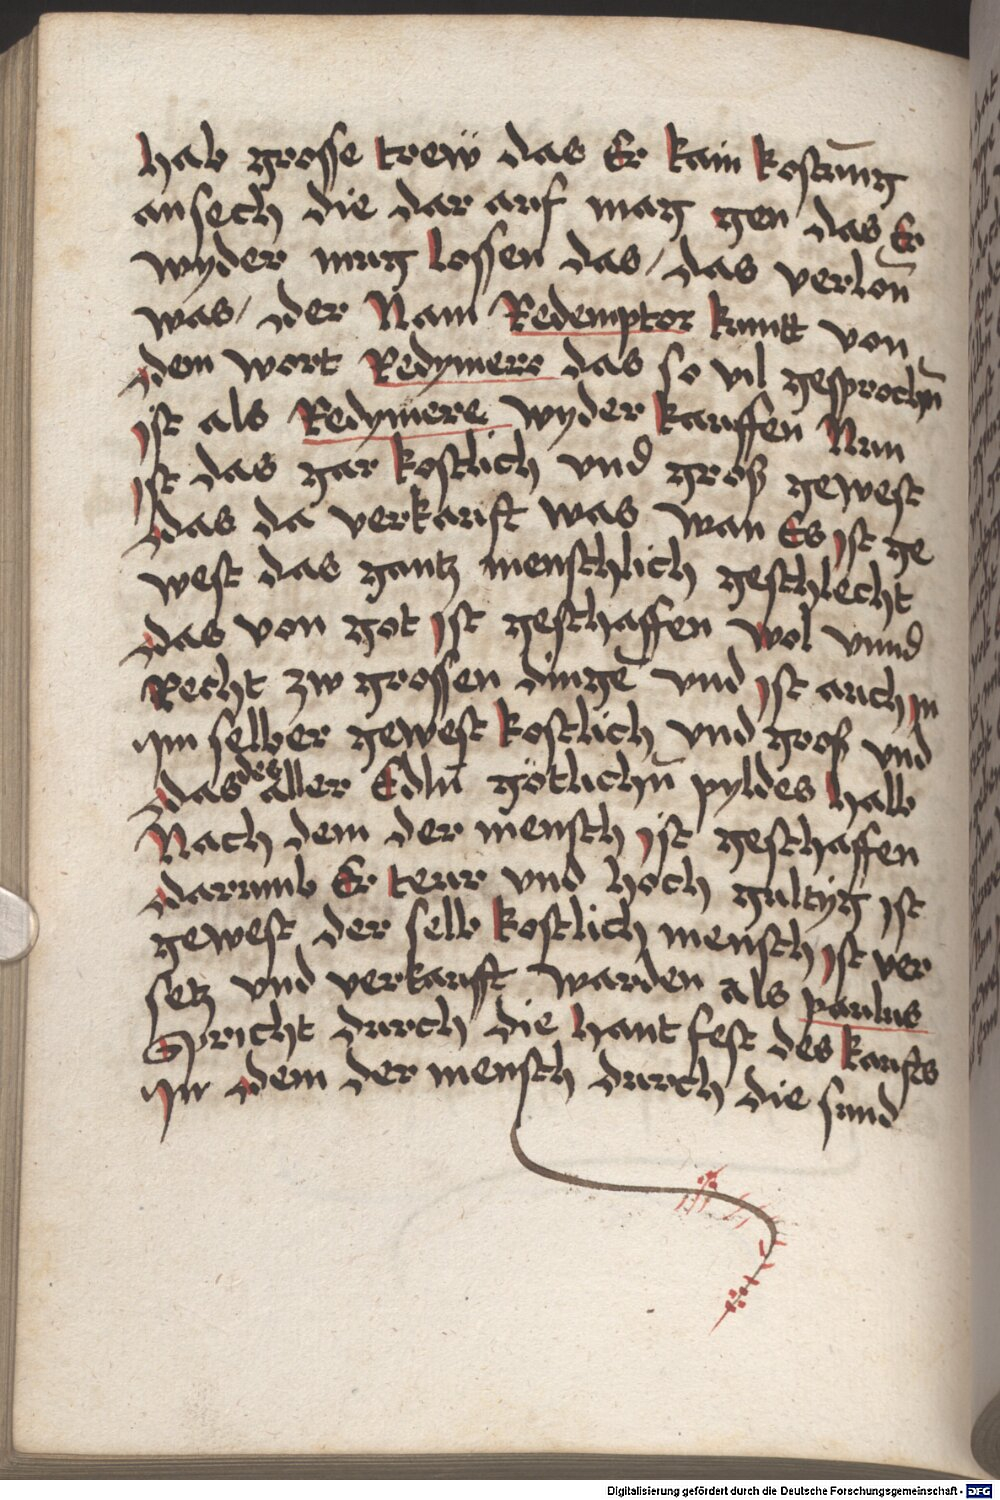 hab grosse treẅ das Er kain kostūng
ansech die dar auf mag gen das Er
wyder mug lossen das / das verlon̄
was / der Nam Redemptor kumtt von
dem wort Redymere das so vil gesprochn̄
ist als Redymere wyder kauffen Nun
ist das gar kostlich vnd groß gewest
das da verkauft was wan Es ist ge
west das gantz menschlich geschlecht
das von got ist geschaffen wol vnnd
Recht zw grossen dinge vnd ist auch in
im selber gewest kostlich vnd groß vnd
das des aller Edln̄ götlichn̄ pyldes halb
Nach dem der mensch ist geschaffen
darumb Er teur vnd hoch gultyg ist
gewest der selb kostlich mensch ist ver
setz vnd verkaufft warden als paulus
Spricht durch die hantfest des kaufts
In dem der mensch durch die sund
Digitalisierung gefördert durch die Deutsche Forschungsgemeinschaft - DFG